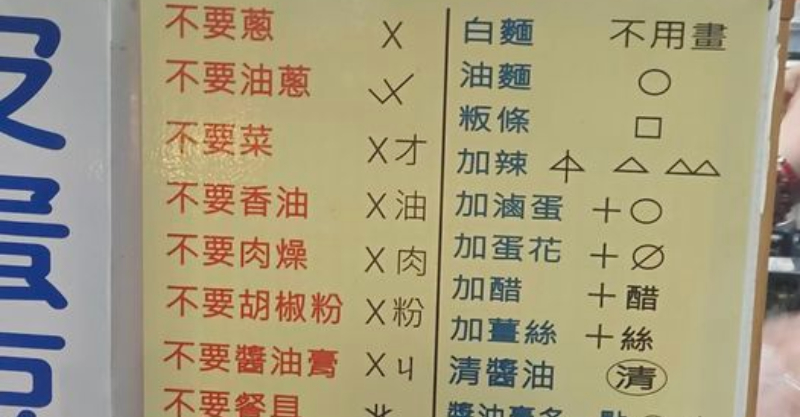 不要蔥 X
不要油蔥
不要菜 X才
不要香油 X油
不要肉燥 X肉
不要胡椒粉 X粉
不要醬油膏 Xㄐ
不要餐具
白麵 不用畫
油麵 ○
粄條 □
加辣
加滷蛋 +○
加蛋花 +∅
加醋 +醋
加薑絲 +絲
清醬油 清
醬油膏多